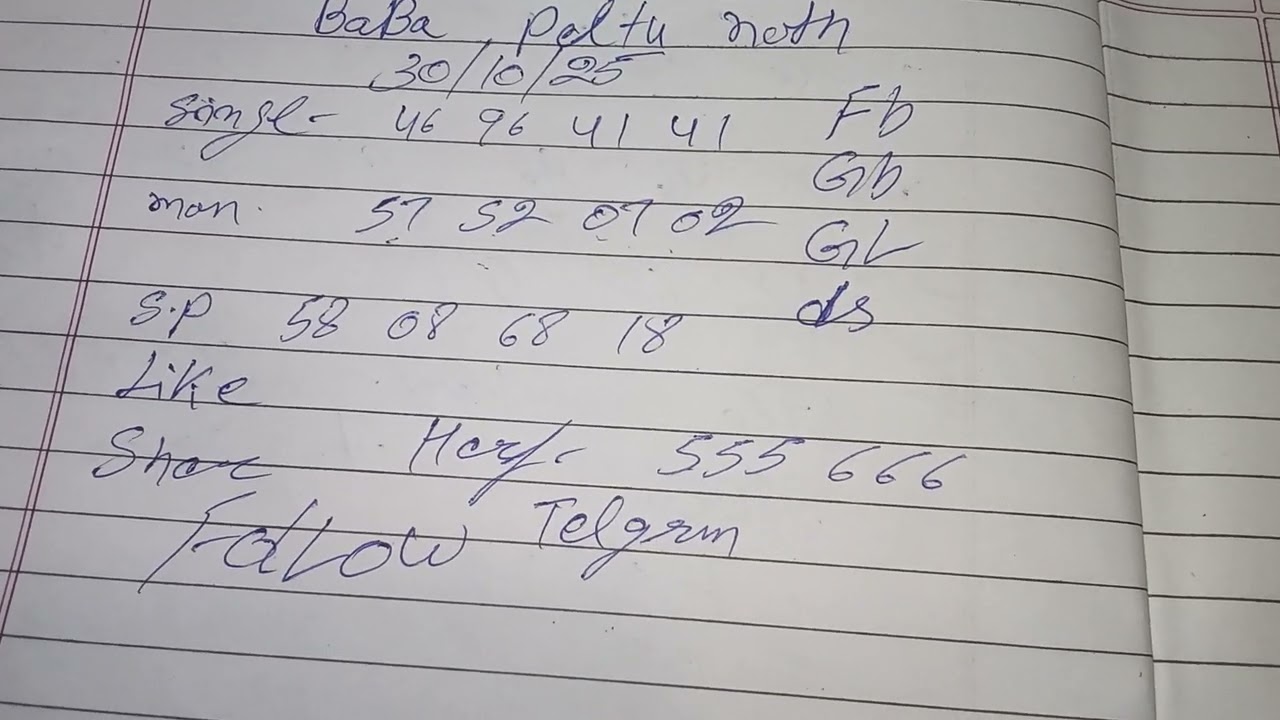 BaBa Paltu nath
30/10/25
Singl- 46 96 41 41 Fb
Gb.
man. 57 52 07 02 GL
S.P 58 08 68 18 ds
Like
Share Harf- 555 666
Follow Telgrm